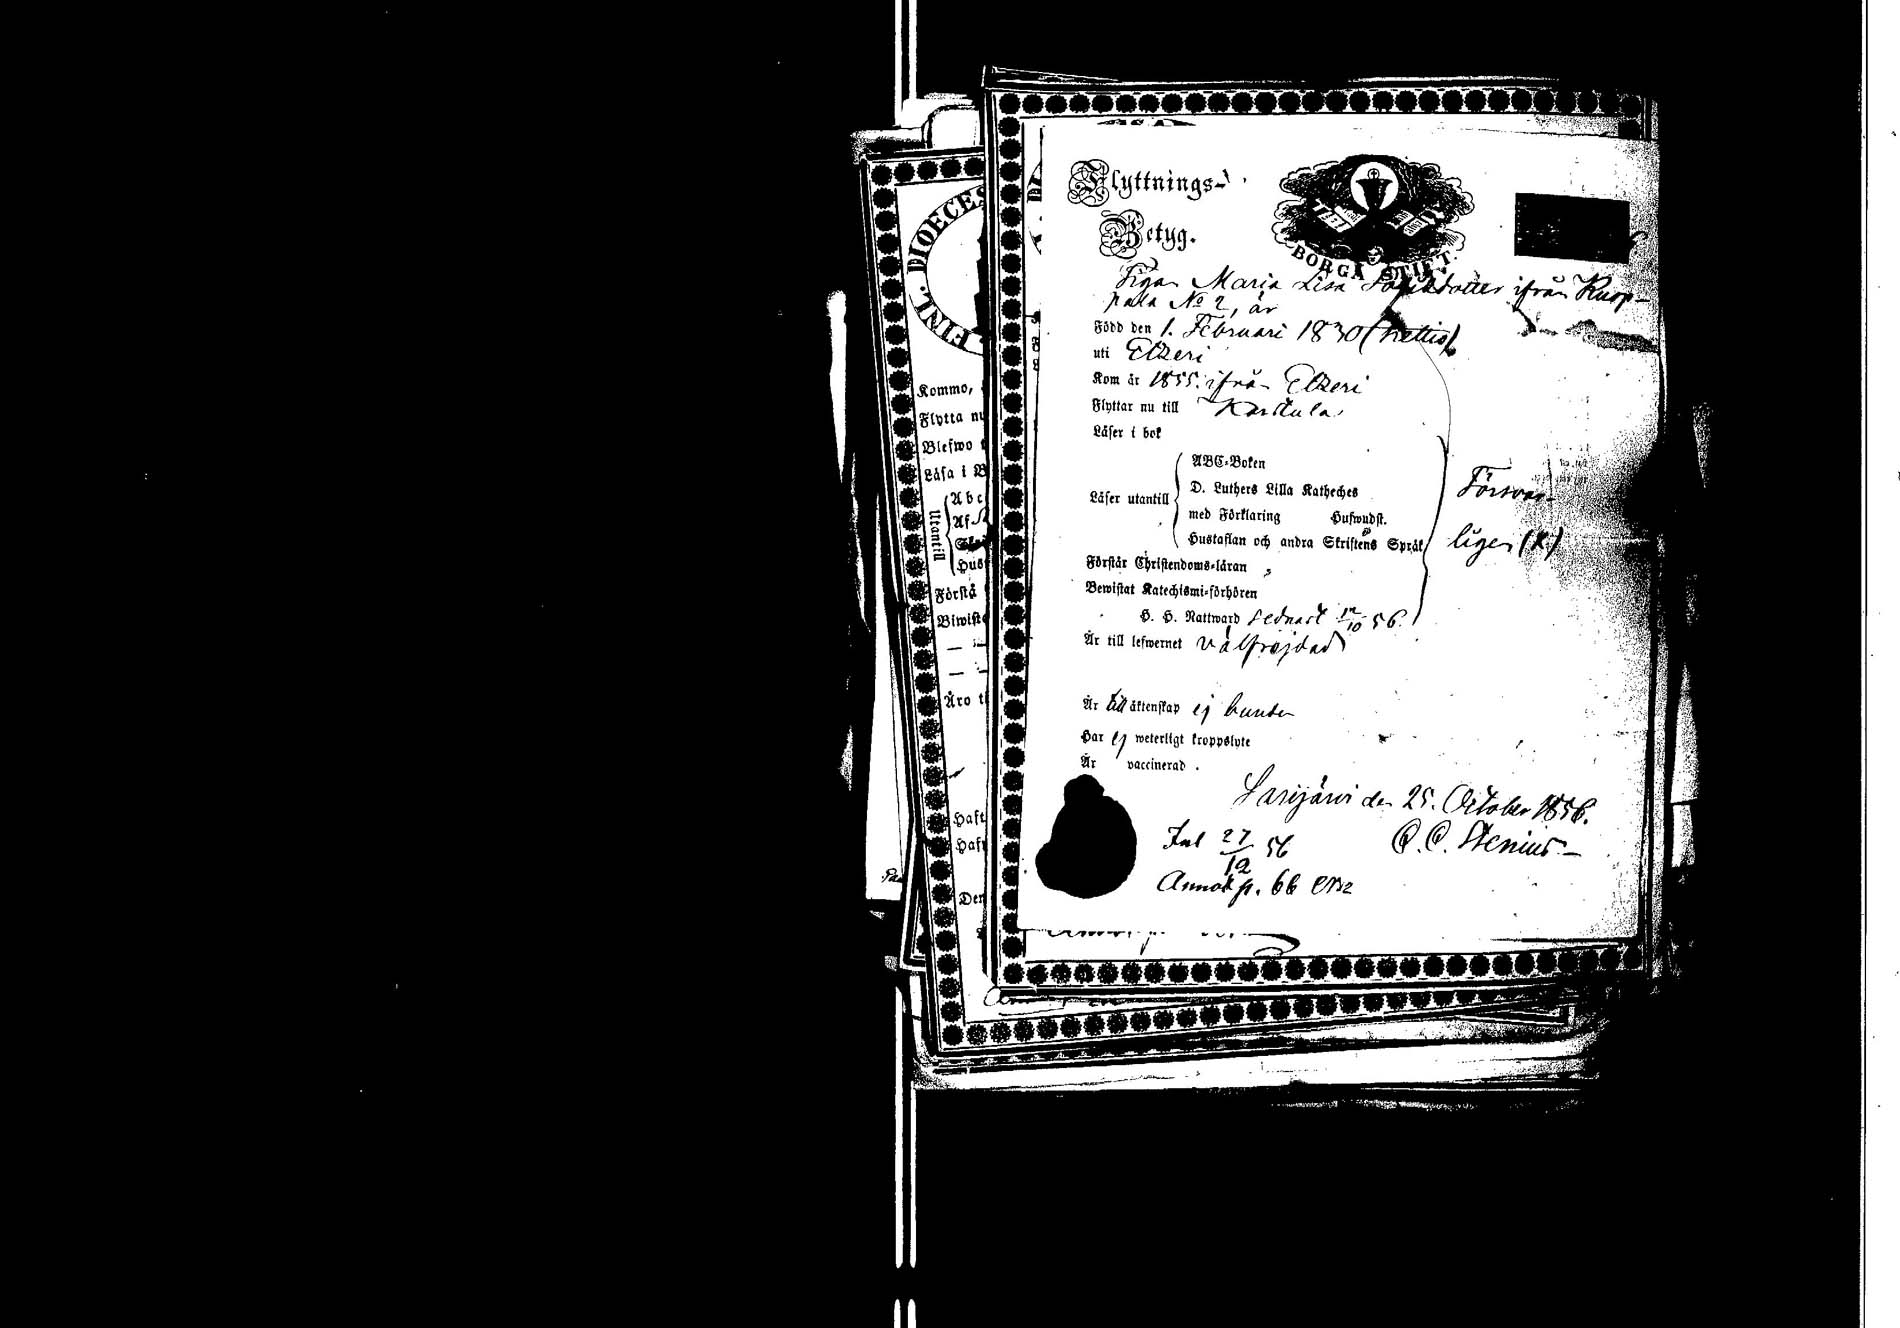 Flyttnings-
Betyg.
BORGÅ STIFT.
Pigan Maria Lisa ifrån Knop-
pala No 2, är
Född den 1. Februari 1830 (trettio)
uti Etzeri
Kom år 1855. ifrån Etzeri
Flyttar nu till Karstula
Läser i bok
ABC-Boken
D. Luthers Lilla Katheches
Läser utantill
med Förklaring Hufwudst.
Hustaflan och andra Skriftens Språk
Förswar-
ligen (x.)
Förstår Christendoms-läran
Bewistat Katechismi-förhören
H. H. Nattward sednast 12/10 56.
Är till lefwernet välfrejdad
Är till äktenskap ej bunden
Har ej weterligt kroppslyte
Är vaccinerad.
Sarijärvi den 25. October 1856.
C. C. Stenius
Inl 27/12 56
Annot p. 66
DIOECES
FINL.
Kommo,
Flytta nu
Blefwo
Läsa i B
Abc
Utantill
Af
Hus
Förstå
Biwista
Äro ti
Haft
Haft
Den